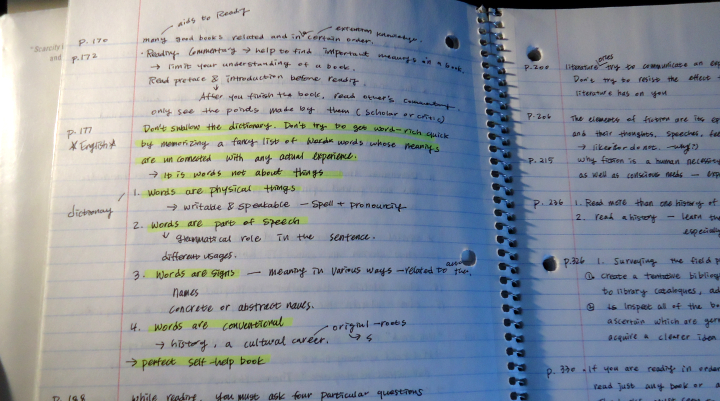 aids to Ready
p.170 many good books related and in certain order. extention knowledge.
p.172 • Reading Commentary → help to find important meanings in a book.
→ limit your understanding of a book.
Read preface & introduction before reading
After you finish the book, read other's commentary
only see the points made by them (scholar or critic)
p.177 Don't swallow the dictionary. Don't try to get word-rich quick
*English* by memorizing a fancy list of words whose meanings
are unconnected with any actual experience.
→ It is words not about things
dictionary 1. Words are physical things
→ writable & speakable — spell + pronouncing
2. Words are part of speech
grammatical role in the sentence.
different usages.
3. Words are signs — meaning in various ways — related to
names
concrete or abstract
4. Words are conventional
→ history, a cultural career. original - roots
→ perfect self-help book
while reading, you must ask four particular questions
p.200 literature try to communicate an
Don't try to resist the effect
literature has on you
p.206 The elements of fiction are its
and their thoughts, speeches,
→ like or do not. - why?)
p.215 Why fiction is a human
as well as conscious needs —
p.236 1. Read more than one history of
2. read a history — learn
p.326 1. Surveying the field
① create a tentative
to library catalogues,
② Inspect all of the
ascertain which are
acquire a clearer idea
p.330 • If you are reading in order
read just any book or